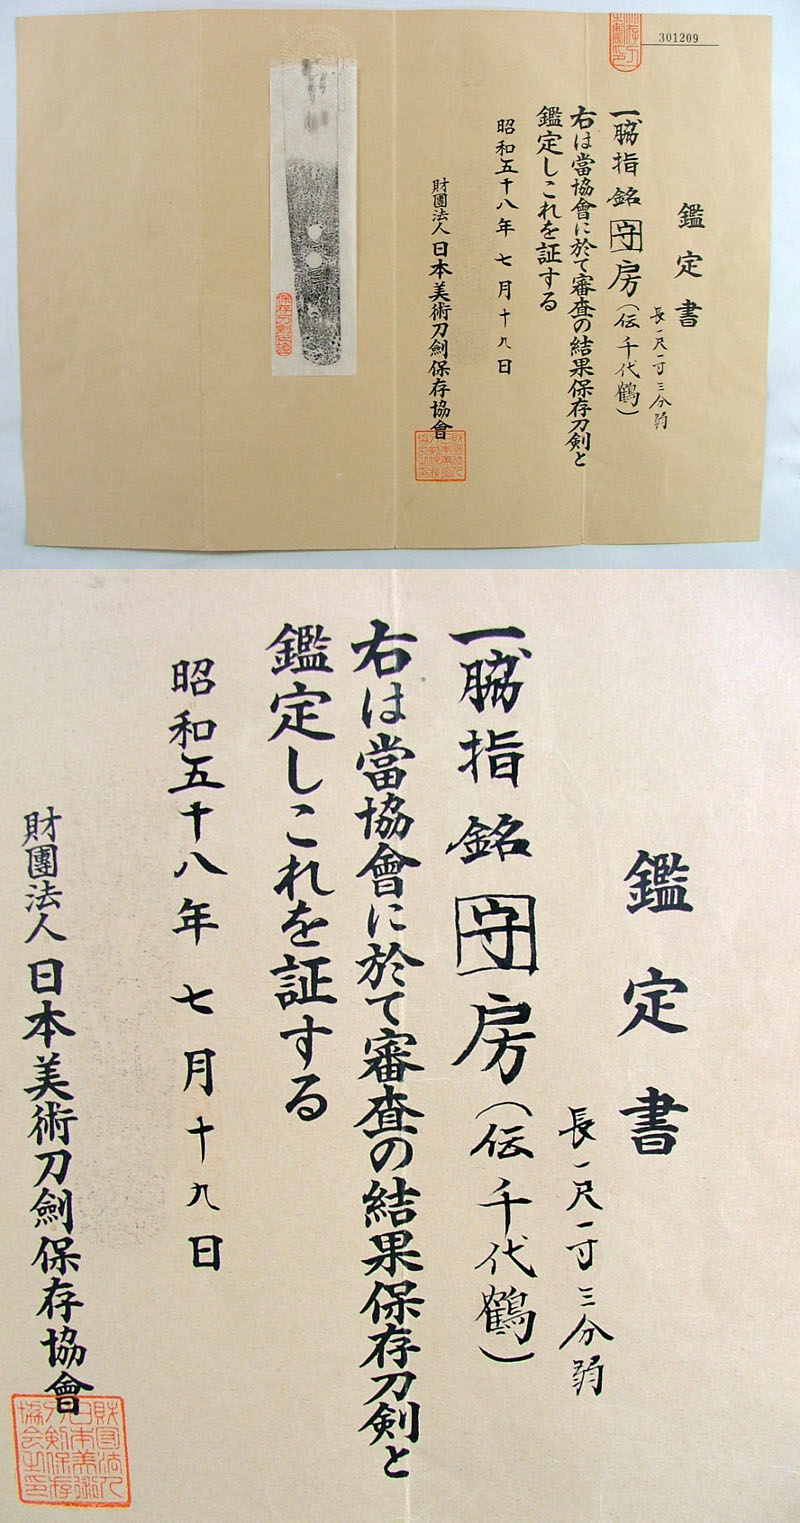 301209
鑑定書
長一尺一寸三分弱
一、脇指 銘 守房(伝千代鶴)
右は當協會に於て審査の結果保存刀剣と
鑑定しこれを証する
昭和五十八年七月十九日
財團法人日本美術刀劍保存協會
鑑定書
長一尺一寸三分弱
一、脇指 銘 守房(伝千代鶴)
右は當協會に於て審査の結果保存刀剣と
鑑定しこれを証する
昭和五十八年七月十九日
財團法人日本美術刀劍保存協會
財団法人
日本美術
刀剣保存
協会之印